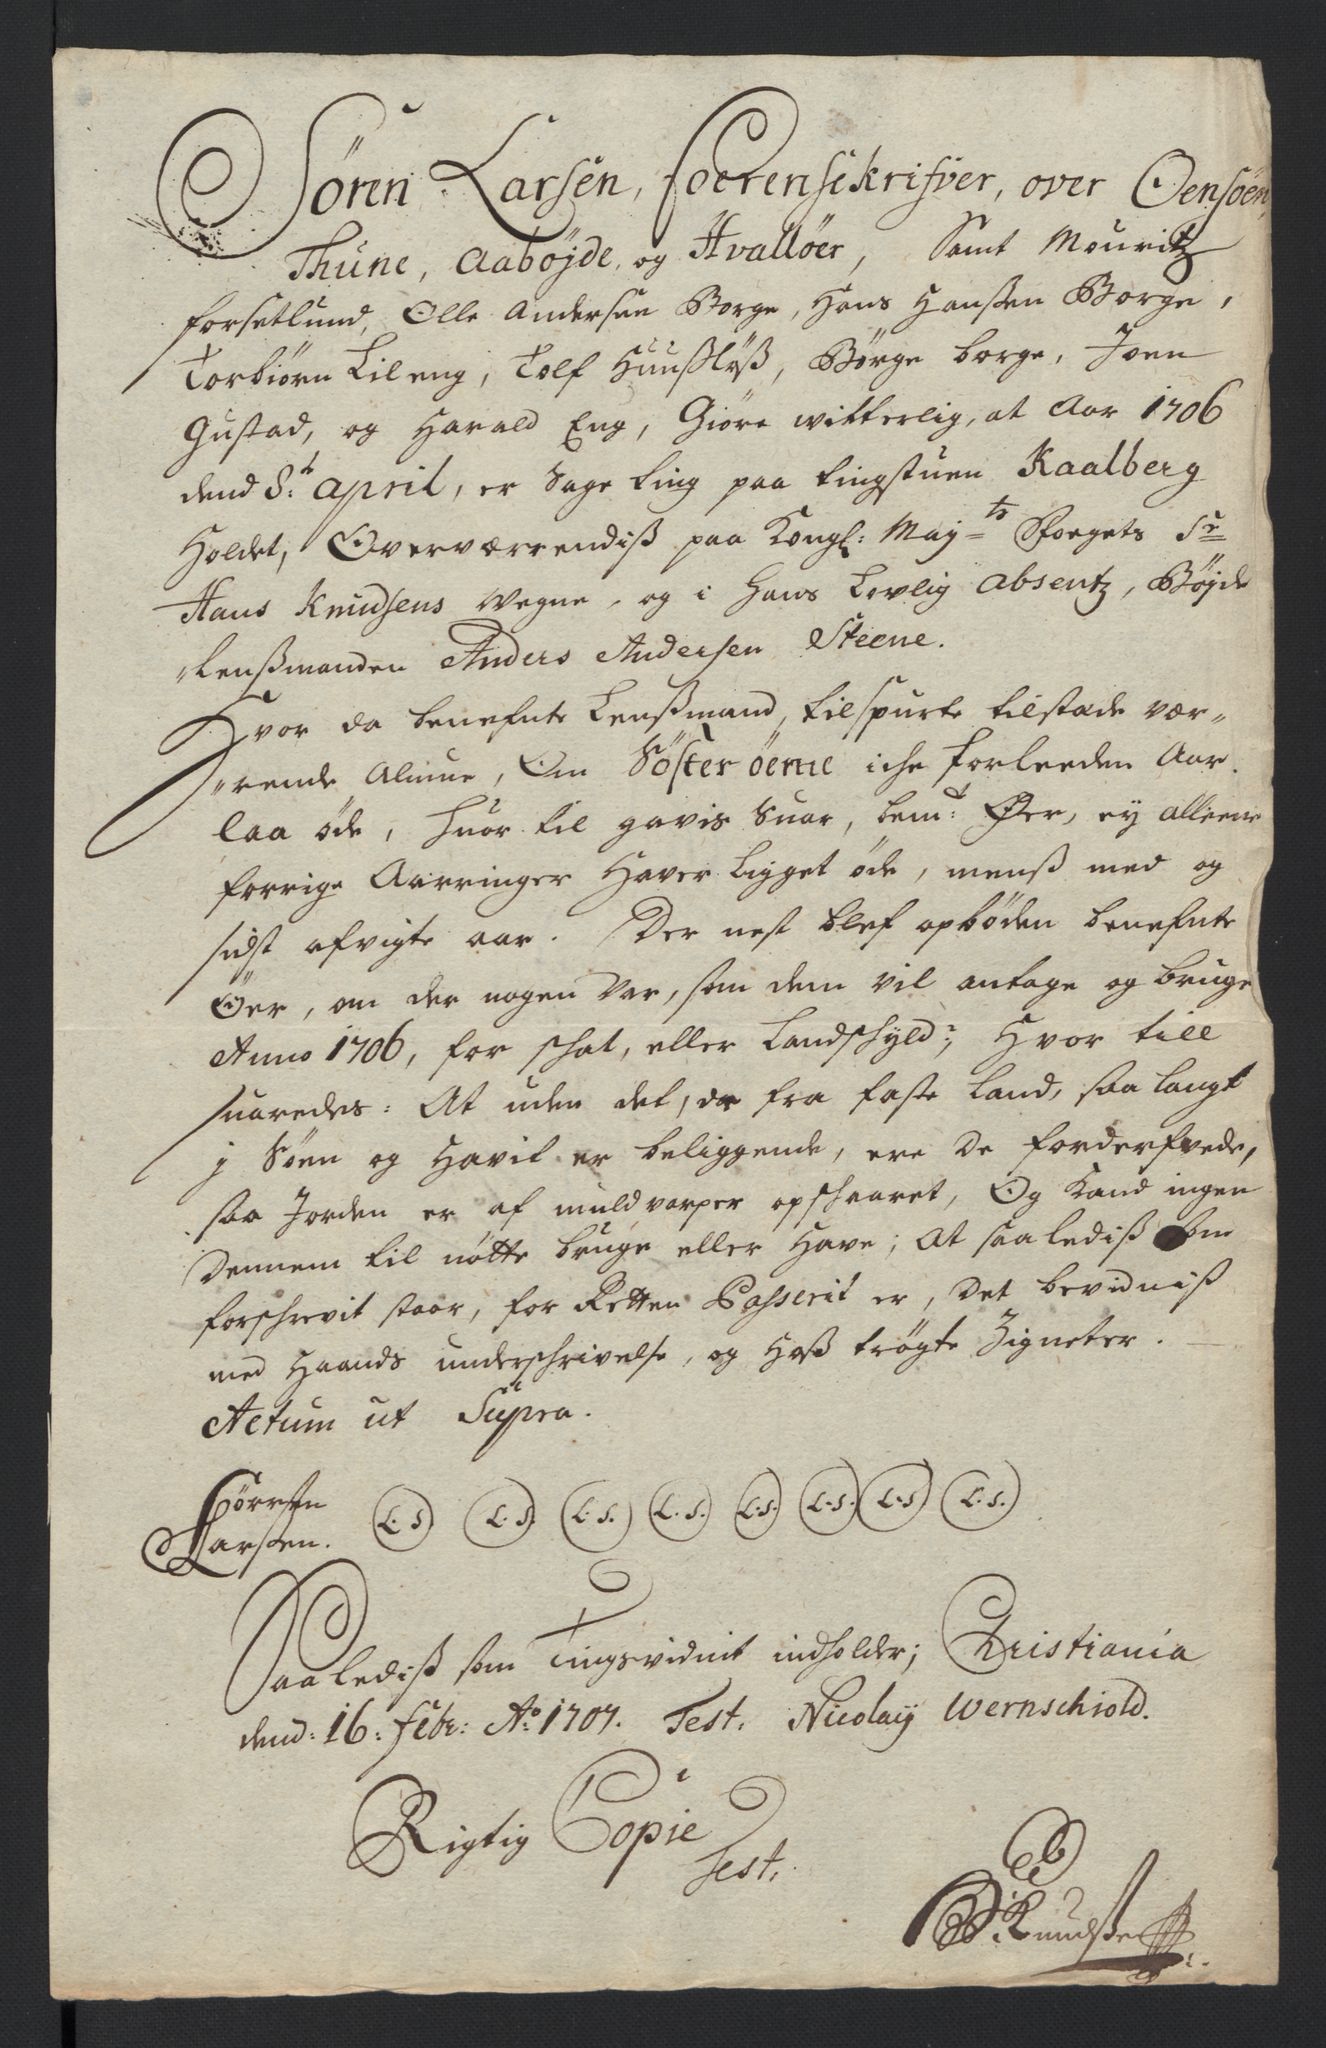 Sören Larsen, Soerenschrifver, over Oensöen,
Thune, Aabøjde, og Hvalløer, Samt Mouritz
forsetlund, Olle Andersen Borge, Hans Hanssen Borge,
Torbiörn Lileng, Tolf Huusløß, Børge borge, Joen
Gustad, og Harald Eng, Giöre witterlig, at Aar 1706
dend 8t: april, er Sage ting paa tingstuen Kaalberg
Holdet, Overværrendiß paa Kongl: Mayts Foegets Sr
Hans Knudsens Vegne, og i Hans Lovlig absentz, Bøjde
Lenßmanden Anders Andersen Steene.
Hvor da benefnte Lenßmand, tilspurte tilstæde vær-
rende Almue, Om Söster öerne iche forleeden Aar
laa øde, huor til gavis Suar, bemt: Øer, ey alleene
forrige Aarringer Haver Ligget øde, menß med og
sidst afvigte aar. Der nest blef opböden benefnte
Öer, om der nogen var, som dem vil antage og bruge
Anno 1706, for schat, eller Landschyld; Hvor till
suaredes: At uden det, de fra faste Land, saa langt
j Söen og Havit er beliggende, ere de forderfvede,
saa Jorden er af muldvarper opschaaret, Og Kand ingen
Dennem til nötte bruge eller Have; At saalediß som
forschrevit staar, for Retten Passerit er, Det bevidniß
med Haands underschrivelse, og Hoß trögte Zigneter.
Actum ut Supra.
Sörren
Larsen. L.S. L.S. L.S. L.S. L.S. L.S. L.S. L.S.
Saalediß som Tingsvidnit indholder; Christiania
dend: 16: febr: Ao: 1707. Test. Nicolaij Wernschiold.
Rigtig Copie
Test.
Knudsen